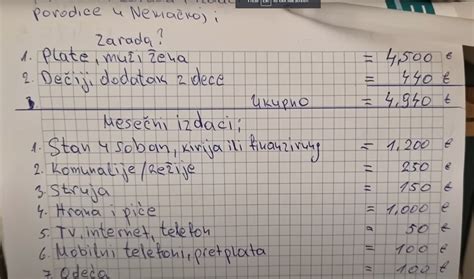 porodice u Nemačkoj i
Zarada?
1. Plate, muž i žena = 4,500 €
2. Dečiji dodatak 2 dece = 440 €
Ukupno = 4,940 €
Mesečni izdaci;
1. Stan 4 soban, kirija ili finanzirung = 1,200 €
2. Komunalije/Režije = 250 €
3. Struja = 150 €
4. Hrana i piće = 1,000 €
5. TV, internet, telefon = 50 €
6. Mobilni telefoni, pretplata = 100 €
7. Odeća = 100 €